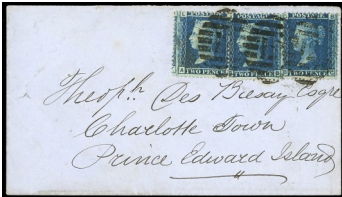 POSTAGE POSTAGE POSTAGE
TWO PENCE TWO PENCE TWO PENCE
Theoph. Des Brisay Esqre
Charlotte Town
Prince Edward Island